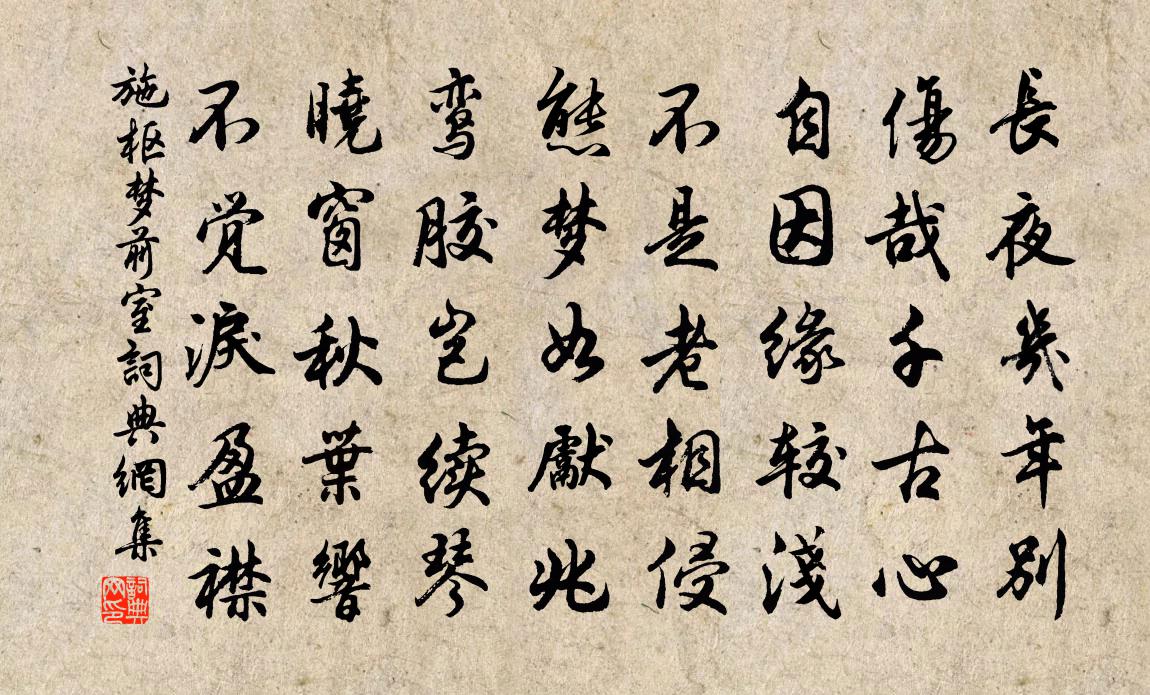 長夜幾年别
傷哉千古心
自因缘较淺
不是老相侵
熊梦如獻兆
鸾胶岂续琴
曉窗秋葉響
不觉淚盈襟
施枢梦前室詞典網集
詞典